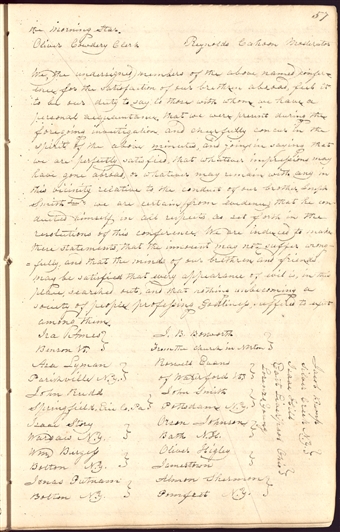 57
the Morning Star.
Oliver Cowdery Clerk Reynolds Cahoon Moderator
We, the undersigned, members of the above named confer-
ence for the satisfaction of our brethren abroad, feel it
to be our duty to say to those with whom we have a
personal acquaintance, that we were present during the
foregoing investigation and cheerfully concur in the
spirit of the above minutes, and join in saying that
we are perfectly satisfied, that whatever impressions may
have gone abroad, or whatever may remain with any in
this vicinity relative to the conduct of our brother Joseph
Smith Jr we are certain from evidence, that he con-
ducted himself, in all respects as set forth in the
resolutions of this conference. We are induced to make
these statements, that the innocent may not suffer wrong-
fully, and that the minds of our brethren and friends
may be satisfied that every appearance of evil is, in this
place, searched out, and that nothing unbecoming a
society of people professing Godliness, suffered to exist
among them.
Ira Ames J. B. Bosworth
Benson Vt. From the church in Norton
Asa Lyman Roswell Evans
Parishville N.Y. of Waterford Vt.
John Rudd John Smith
Springfield, Erie Co. Pa. Potsdam N.Y.
Isaac Story Orson Johnson
Warsaw N.Y. Bath N.H.
Wm Burgess Oliver Higley
Bolton N.Y. Jamestown
Jonas Putnam Almon Sherman
Bolton N.Y. Pomfret N.Y.
Silver Creek N.Y.
Isaac Hill
East Liverpool Ohio